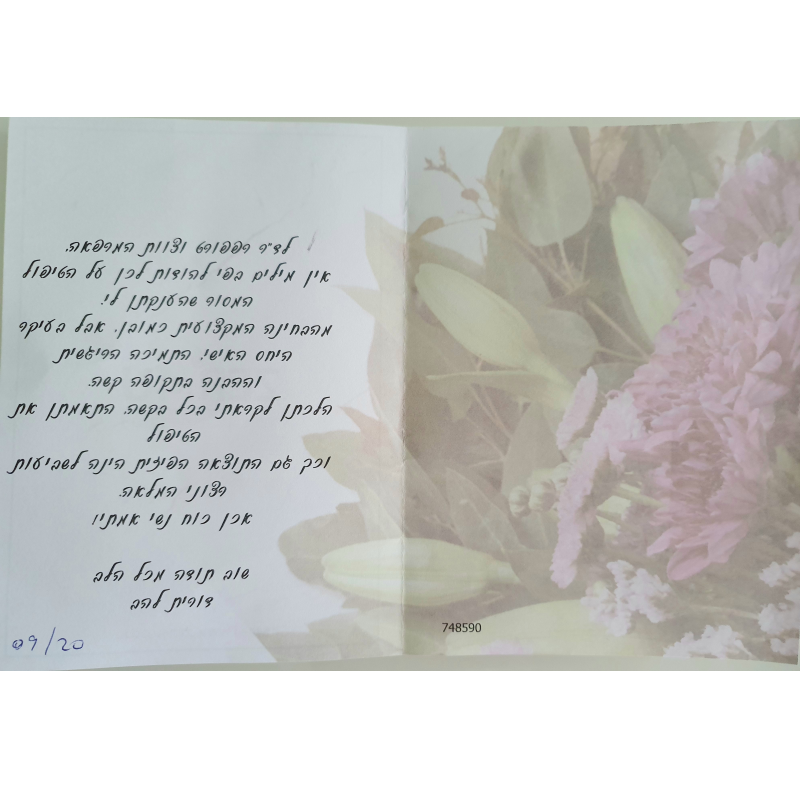 לד״ר רפפורט וצוות המרפאה,
אין מילים בפי להודות לכן על הטיפול
המסור שהענקתן לי,
מהבחינה המקצועית כמובן, אבל בעיקר
היחס האישי, התמיכה הריגשית
וההבנה בתקופה קשה.
הלכתן לקראתי בכל בקשה, התאמתן את
הטיפול
וכך גם התוצאה הפיזית הינה לשביעות
רצוני המלאה.
אכן כוח נשי אמתי!
שוב תודה מכל הלב
דורית להב
09/20
748590